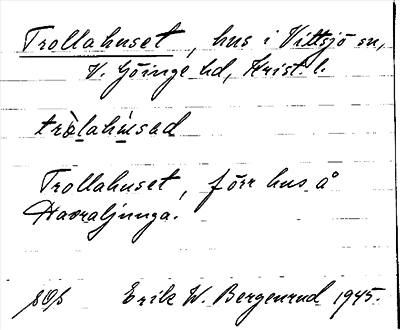 Trollahuset, hus i Vittsjö sn,
V. Göinge hd, Krist. l.
tròlahùsad
Trollahuset, förr hus å
Havraljunga.
Erik W. Bergenrud 1945.